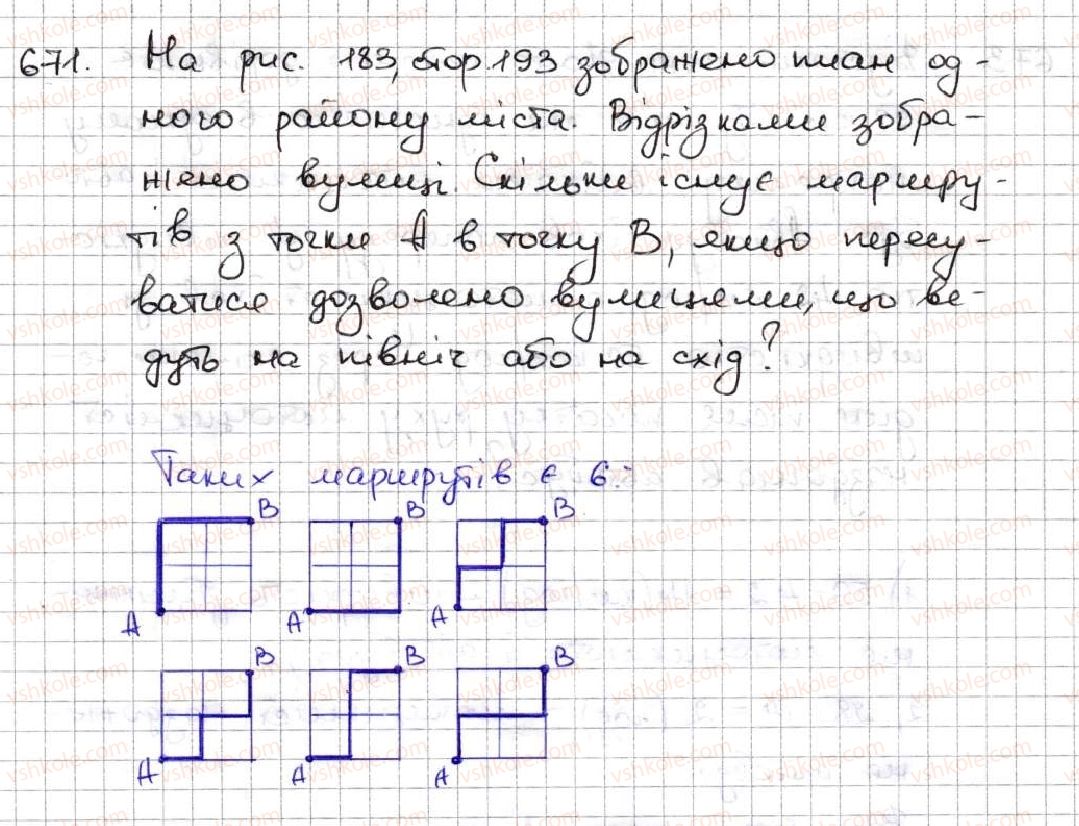 671. На рис. 183, стор. 193 зображено план од-
ного району міста. Відрізками зобра-
жено вулиці. Скільки існує маршру-
тів з точки А в точку В, якщо пересу-
ватися дозволено вулицями, що ве-
дуть на північ або на схід?
Таких маршрутів є 6:
В В В
А А А
В В В
А А А